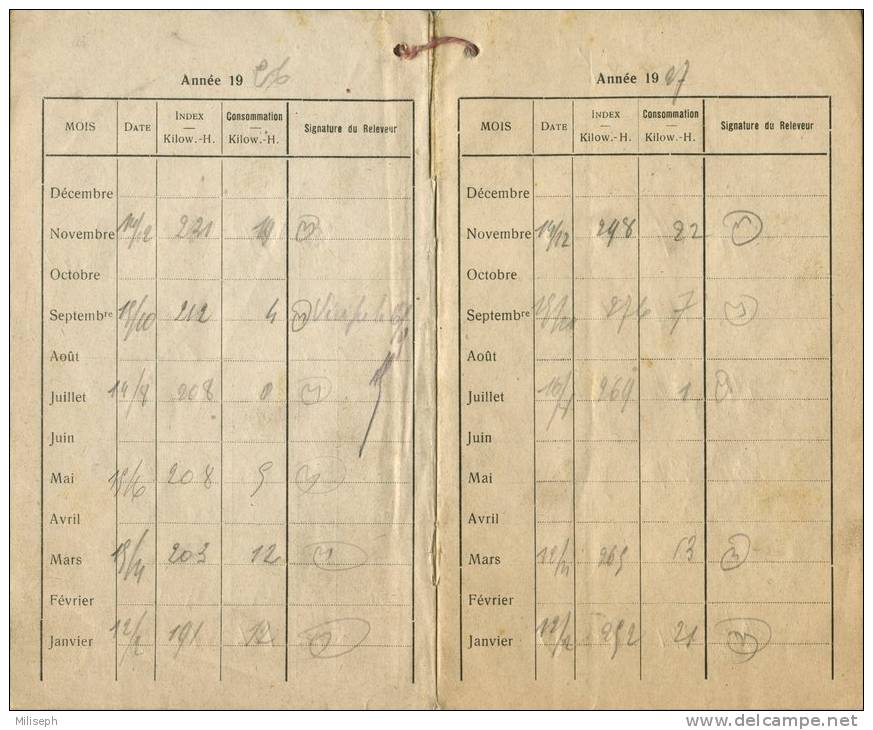 Année 1926
MOIS DATE INDEX — Kilow.-H. Consommation — Kilow.-H. Signature du Releveur
Décembre
Novembre 14/12 231 19
Octobre
Septembre 15/10 212 4
Août
Juillet 14/8 208 0
Juin
Mai 15/6 208 5
Avril
Mars 15/4 203 12
Février
Janvier 12/2 191 12
Année 1927
MOIS DATE INDEX — Kilow.-H. Consommation — Kilow.-H. Signature du Releveur
Décembre
Novembre 14/12 298 22
Octobre
Septembre 276 7
Août
Juillet 269 1
Juin
Mai
Avril
Mars 265 13
Février
Janvier 12/2 252 21
Miliseph
delcampe.net